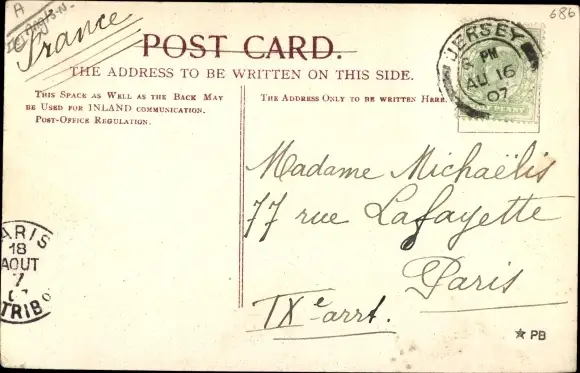 A
France
686
POST CARD.
THE ADDRESS TO BE WRITTEN ON THIS SIDE.
THIS SPACE AS WELL AS THE BACK MAY
BE USED FOR INLAND COMMUNICATION.
POST-OFFICE REGULATION.
THE ADDRESS ONLY TO BE WRITTEN HERE.
JERSEY
8 PM
AU 16
07
Madame Michaëlis
77 rue Lafayette
Paris
IXe arrt.
PARIS
18
AOUT
7
07
TRIB
★ PB